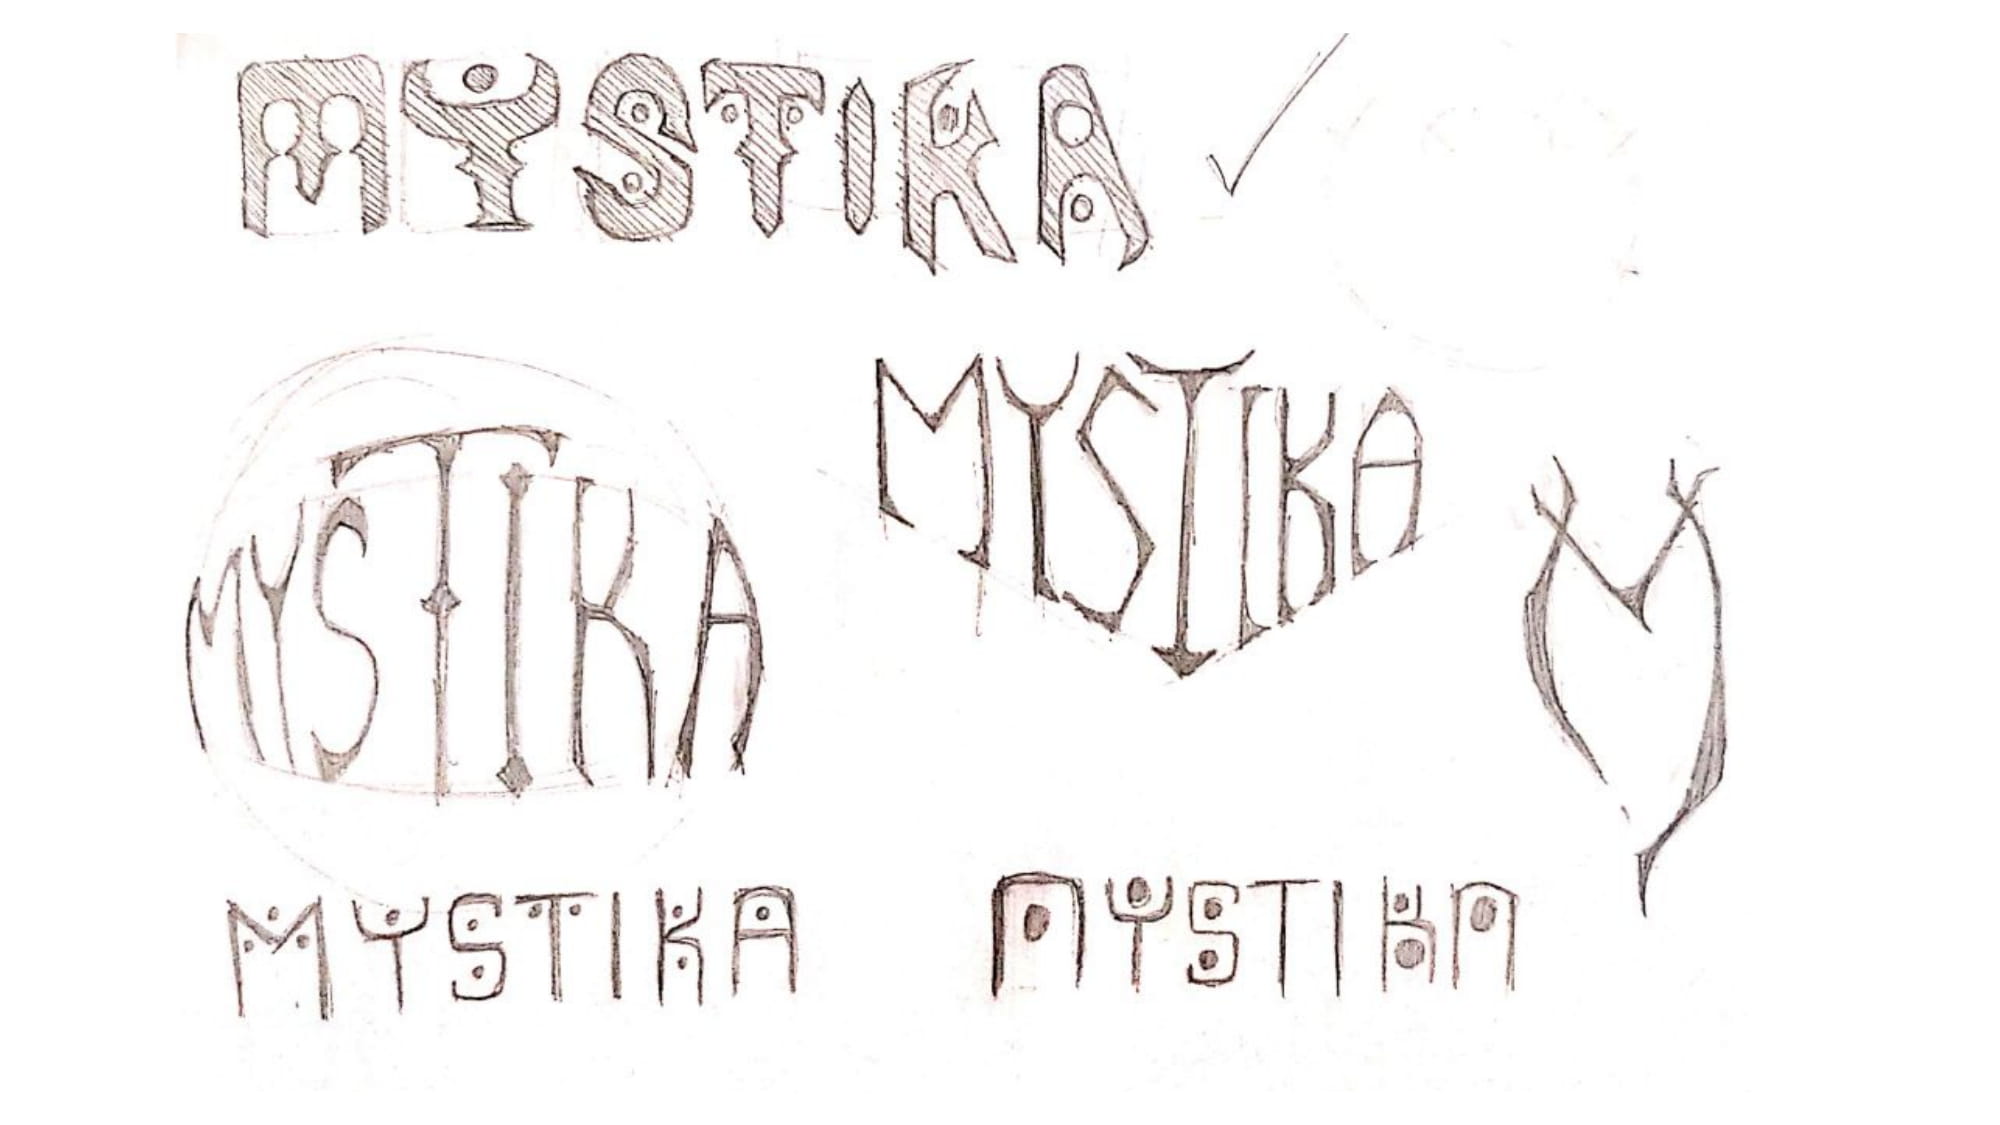 MYSTIKA
MYSTIKA
MYSTIKA
M
MYSTIKA
MYSTIKA